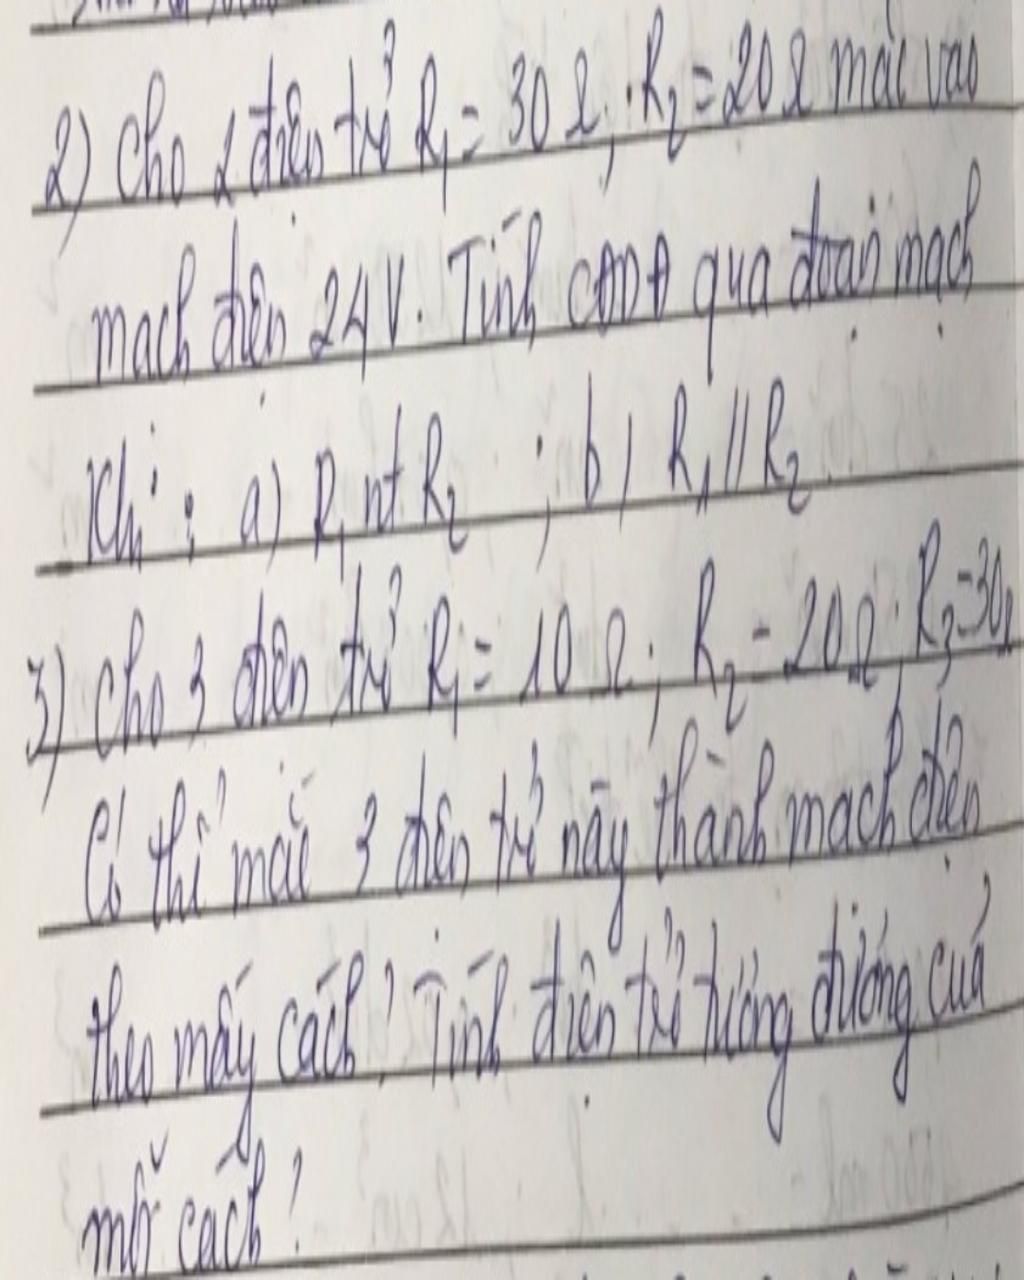 2) Cho 2 điện trở R₁ = 30 Ω; R₂ = 20 Ω mắc vào
mạch điện 24V. Tính CĐDĐ qua đoạn mạch
Khi: a) R₁ nt R₂ ; b) R₁ // R₂.
3) Cho 3 điện trở R₁ = 10 Ω; R₂ = 20 Ω; R₃ = 30Ω
Có thể mắc 3 điện trở này thành mạch điện
theo mấy cách? Tính điện trở tương đương của
mỗi cách?